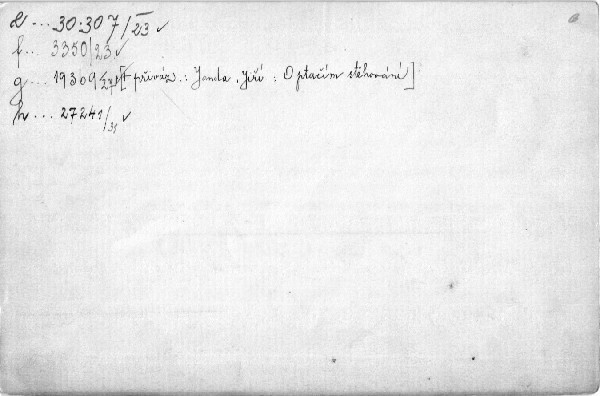 e ... 30.307/I 23 ✓
f... 3350/23 ✓
g... 19309/27 [+ přivaz.: Janda, Jiří: O ptačím stěhování]
h... 27241/31 ✓